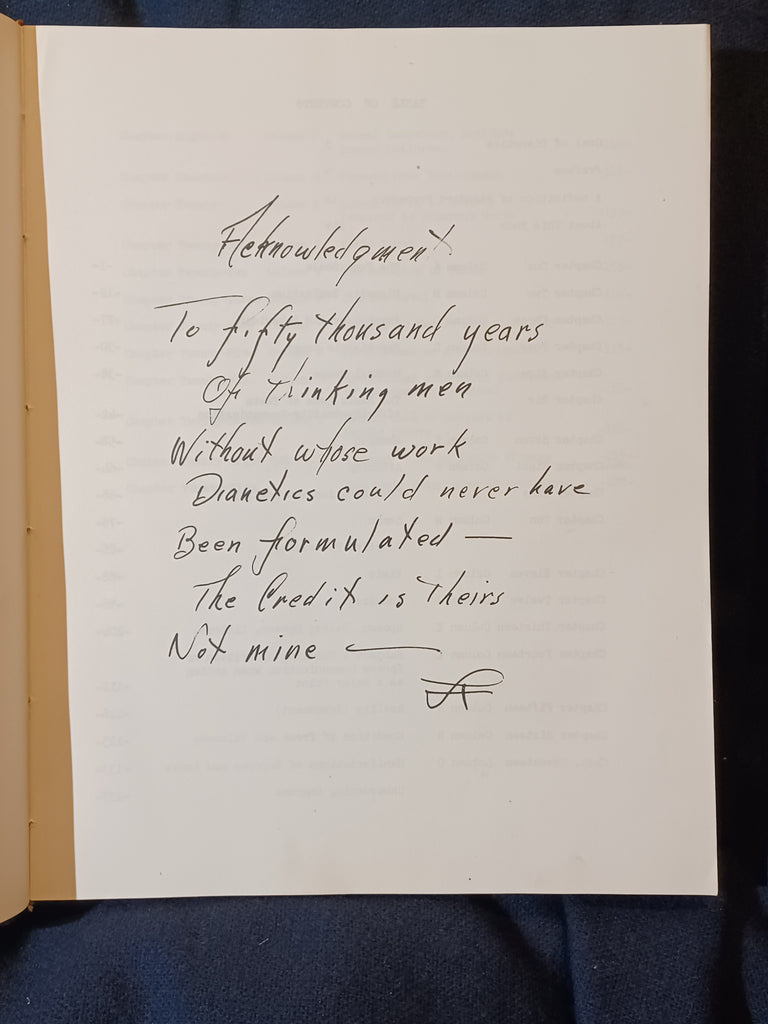 Acknowledgment
To fifty thousand years
Of thinking men
Without whose work
Dianetics could never have
Been formulated —
The Credit is Theirs
Not mine —